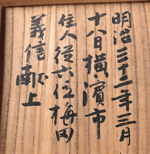 明治三十二年三月
十八日横濱市
住人從六位梅田
義信献上